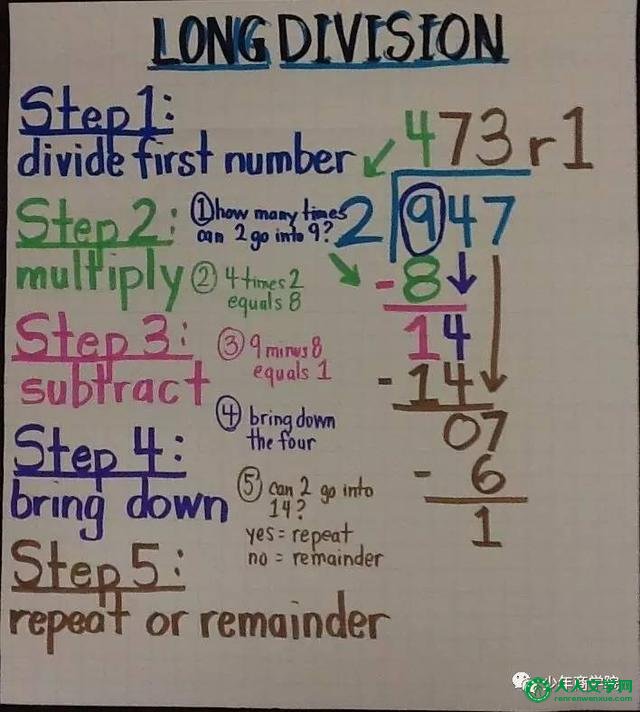 LONG DIVISION
Step 1:
divide first number
Step 2:
multiply
Step 3:
subtract
Step 4:
bring down
Step 5:
repeat or remainder
① how many times
can 2 go into 9?
② 4 times 2
equals 8
③ 9 minus 8
equals 1
④ bring down
the four
⑤ can 2 go into
14?
yes = repeat
no = remainder
473 r 1
2 947
- 8
14
- 14
07
- 6
1
少年商学院
人人文学网
renrenwenxue.com